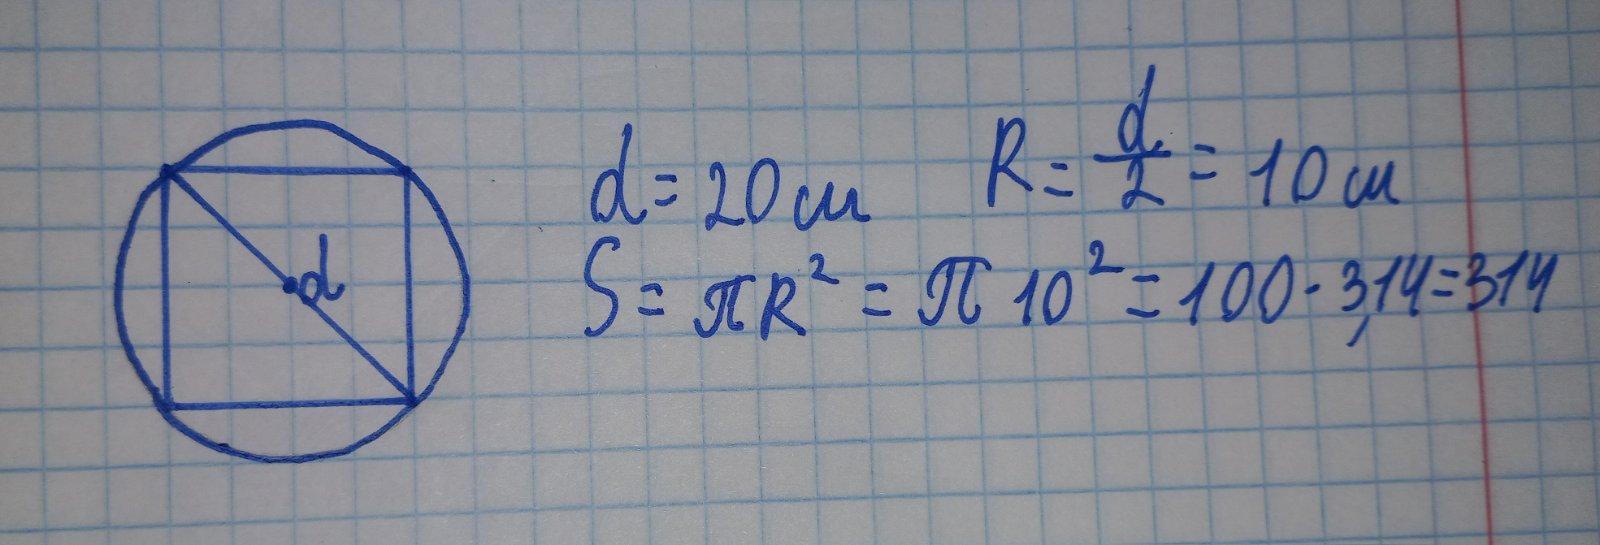 d
d = 20 см   R = d/2 = 10 см
S = πR² = π 10² = 100 · 3,14 = 314